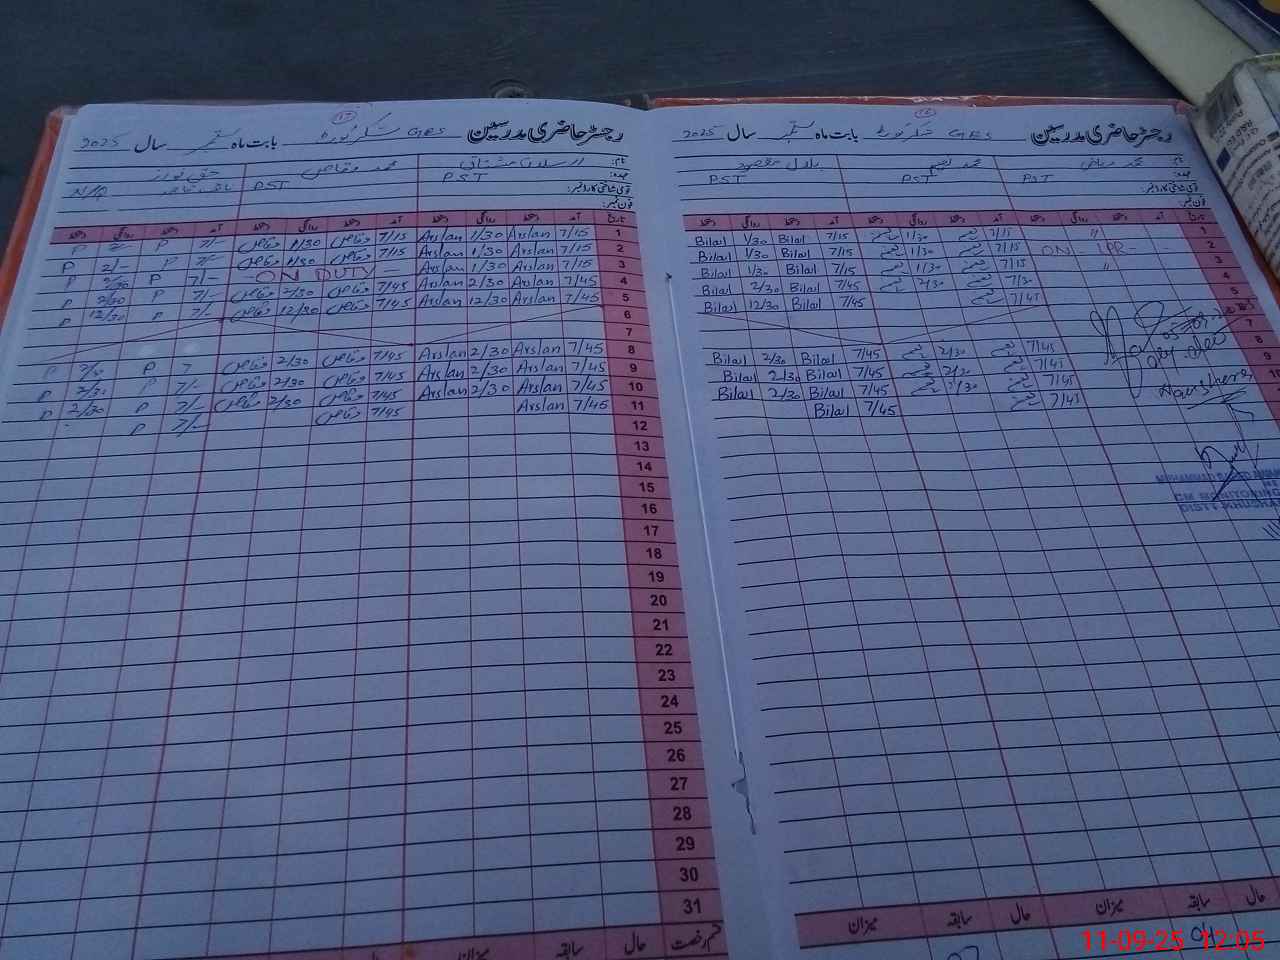 رجسٹر حاضری مدرسین GES شکر پورہ بابت ماہ ستمبر سال 2025
نام: محمد ریاض محمد نعیم بلال مقصود
عہدہ: PST PST PST
قومی شناختی کارڈ نمبر:
فون نمبر:
تاریخ آمد دستخط روانگی دستخط آمد دستخط روانگی دستخط آمد دستخط روانگی دستخط
1 〃 7/15 نعیم 1/30 نعیم 7/15 Bilal 1/30 Bilal
2 ON LPR 7/15 نعیم 1/30 نعیم 7/15 Bilal 1/30 Bilal
3 〃 7/15 نعیم 1/30 نعیم 7/15 Bilal 1/30 Bilal
4 7/30 نعیم 2/30 نعیم 7/45 Bilal 2/30 Bilal
5 7/45 نعیم 7/45 Bilal 12/30 Bilal
7
8 7/45 نعیم 2/30 نعیم 7/45 Bilal 2/30 Bilal
9 7/45 نعیم 2/30 نعیم 7/45 Bilal 2/30 Bilal
10 7/45 نعیم 2/30 نعیم 7/45 Bilal 2/30 Bilal
7/45 نعیم 7/45 Bilal
Nowshera
CM MONITORING
حال سابقہ میزان حال سابقہ میزان
04
رجسٹر حاضری مدرسین GES شکر پورہ بابت ماہ ستمبر سال 2025
17
نام: ارسلان مشتاق محمد وقاص حق نواز
عہدہ: PST PST نائب قاصد N/Q
قومی شناختی کارڈ نمبر:
فون نمبر:
تاریخ آمد دستخط روانگی دستخط آمد دستخط روانگی دستخط آمد دستخط روانگی دستخط
1 7/15 Arslan 1/30 Arslan 7/15 وقاص 1/30 وقاص 7/- P 2/- P
2 7/15 Arslan 1/30 Arslan 7/15 وقاص 1/30 وقاص 7/- P 2/- P
3 7/15 Arslan 1/30 Arslan ON DUTY 7/- P 2/30 P
4 7/45 Arslan 2/30 Arslan 7/45 وقاص 2/30 وقاص 7/- P 2/30 P
5 7/45 Arslan 12/30 Arslan 7/45 وقاص 12/30 وقاص 7/- P 12/30 P
6
7
8 7/45 Arslan 2/30 Arslan 7/45 وقاص 2/30 وقاص 7 P P
9 7/45 Arslan 2/30 Arslan 7/45 وقاص 2/30 وقاص 7/- P 2/30 P
10 7/45 Arslan 2/30 Arslan 7/45 وقاص 2/30 وقاص 7/- P 2/30 P
11 7/45 Arslan 7/45 وقاص 7/- P
12
13
14
15
16
17
18
19
20
21
22
23
24
25
26
27
28
29
30
31
قسم رخصت حال سابقہ میزان
11-09-25 12:05